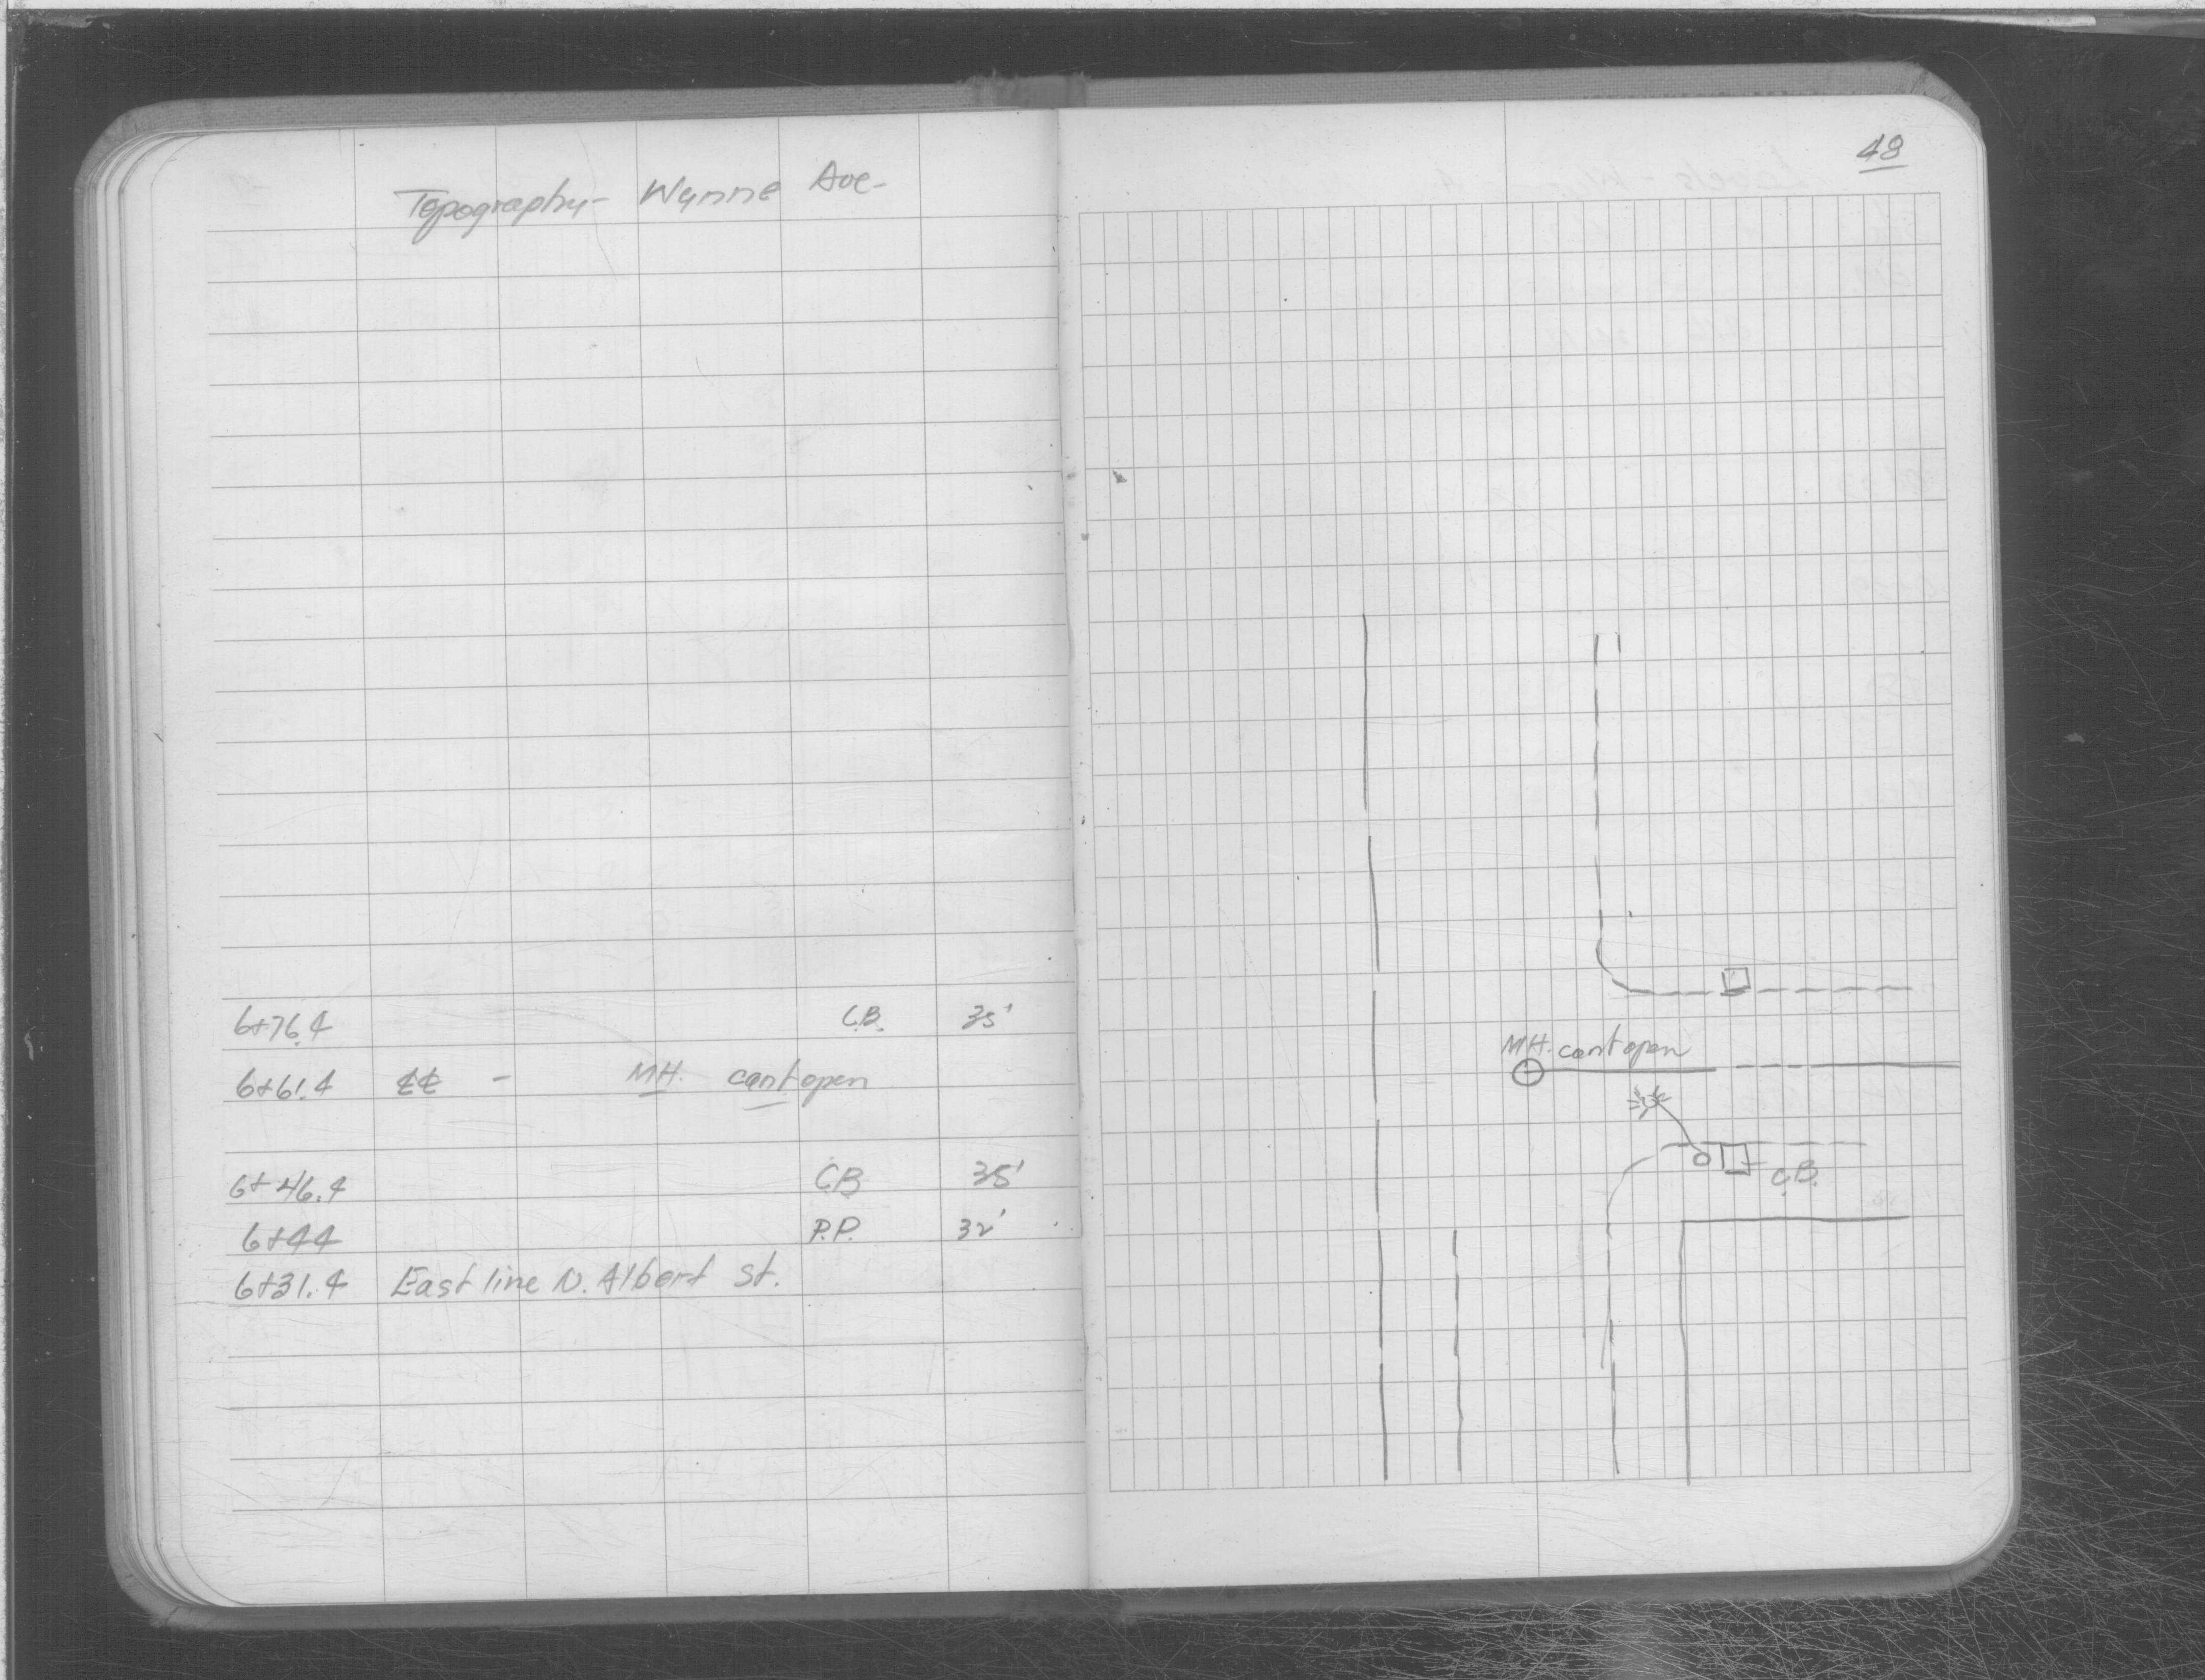 Topography - Wynne Ave -
48
6+76.4 C.B. 35'
6+61.4 ℄℄ - MH. cant open
6+46.4 CB 35'
6+44 P.P. 32'
6+31.4 East line N. Albert St.
MH. cant open
C.B.